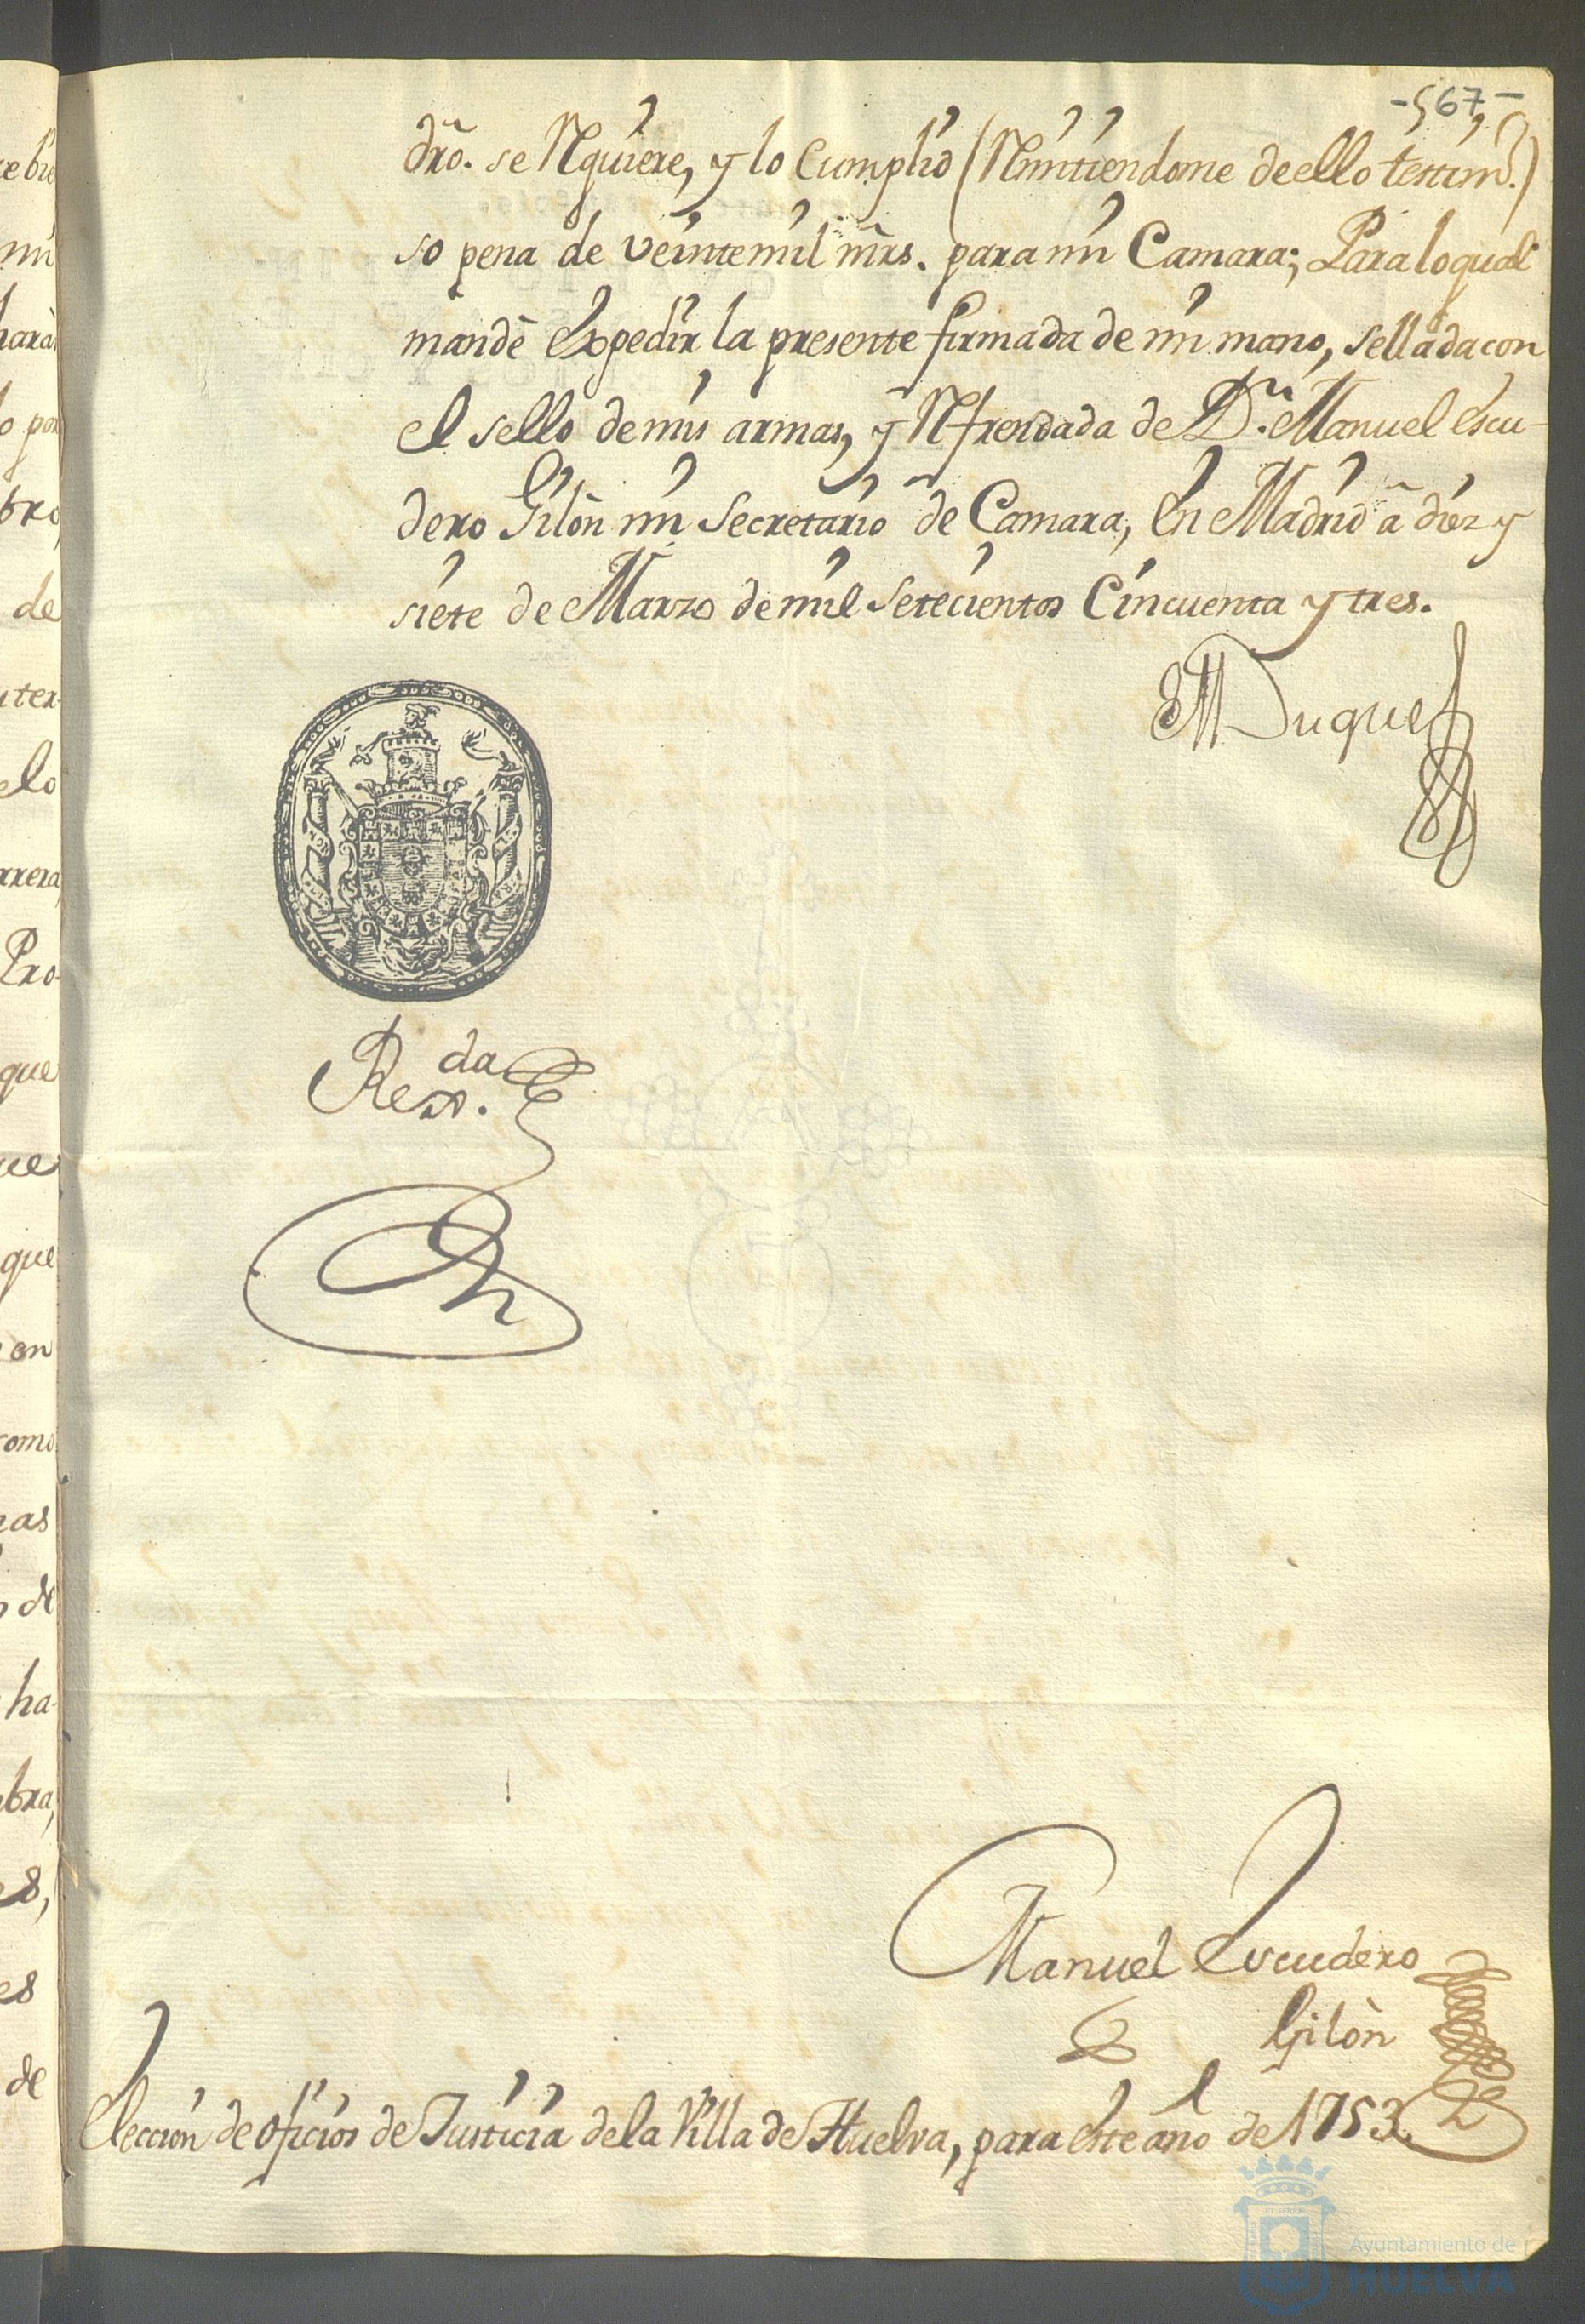 -567-
dr̃o. se Requiere, y lo Cumplió (Remitiendome de ello testimo.)
so pena de veinte mil mr̃s. para mi Camara; Para lo qual
mandè expedir la presente firmada de mi mano, sellada con
el sello de mis armas, y Refrendada de Dn. Manuel Escu-
dero Gilòn mi Secretario de Camara, En Madrid à diez y
siete de Marzo de mil Setecientos Cincuenta y tres.
El Duque
Rexda.
Manuel Escudero
Gilòn
Eleccion de oficios de Justicia de la Villa de Huelva, para este año de 1753.
Ayuntamiento de
HUELVA